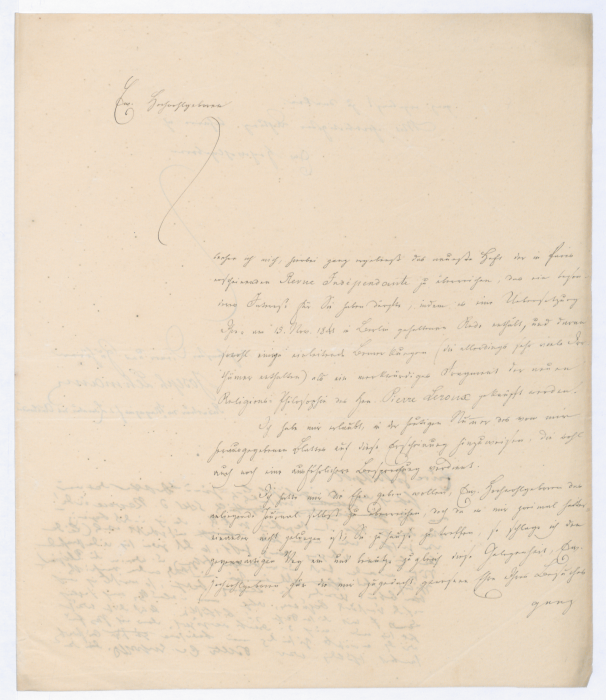 Ew. Hochwohlgeboren
beehre ich mich, hierbei ganz ergebenst das neueste Heft der in Paris
erscheinenden Revue Indépendante zu überreichen, das ein beson-
deres Interesse für Sie haben dürfte, indem es eine Uebersetzung
Ihrer am 15. Nov. 1841 in Berlin gehaltenen Rede enthält, und daran
sowohl einige einleitende Bemerkungen (die allerdings sehr viele Irr-
thümer enthalten) als ein merkwürdiges Fragment der neuen
Religions-Philosophie des Hrn. Pierre Leroux geknüpft werden.
Ich habe mir erlaubt, in der heutigen Nummer des von mir
herausgegebenen Blattes auf diese Erscheinung hinzuweisen, die wohl
auch noch eine ausführlichere Besprechung verdient.
Ich hatte mir die Ehre geben wollen, Ew. Hochwohlgeboren das
anliegende Journal selbst zu überreichen, doch da es mir zweimal
nicht gelungen ist, Sie zu Hause zu treffen, so schlage ich den
gegenwärtigen Weg ein und benutze zugleich diese Gelegenheit, Ew.
Hochwohlgeboren für die mir zugedacht gewesene Ehre Ihres Besuches
ganz